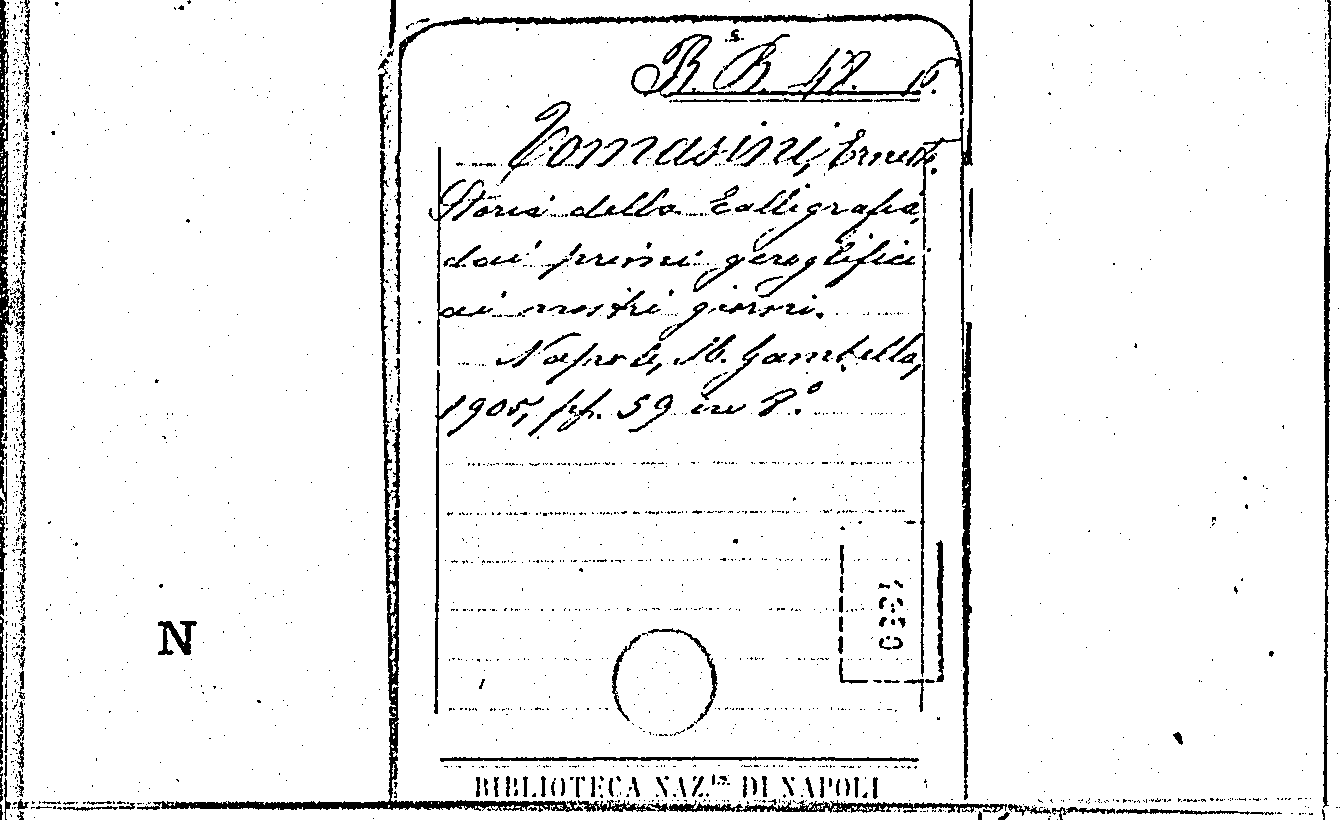 B. B. 48. 15.
Tomasini, Ernesto.
Storia della Calligrafia,
dai primi geroglifici
ai nostri giorni.
Napoli, M. Gambella,
1905, pp. 59 in 8.°
N
BIBLIOTECA NAZ.LE DI NAPOLI